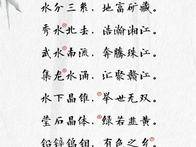 水分三系，地富矿藏。
秀水北去，浩瀚湘江。
武水南流，奔腾珠江。
集龙水涌，汇聚赣江。
水下晶锥，举世无双。
莹石晶体，绿若韭黄。
铅锌钨钼，有色之乡。